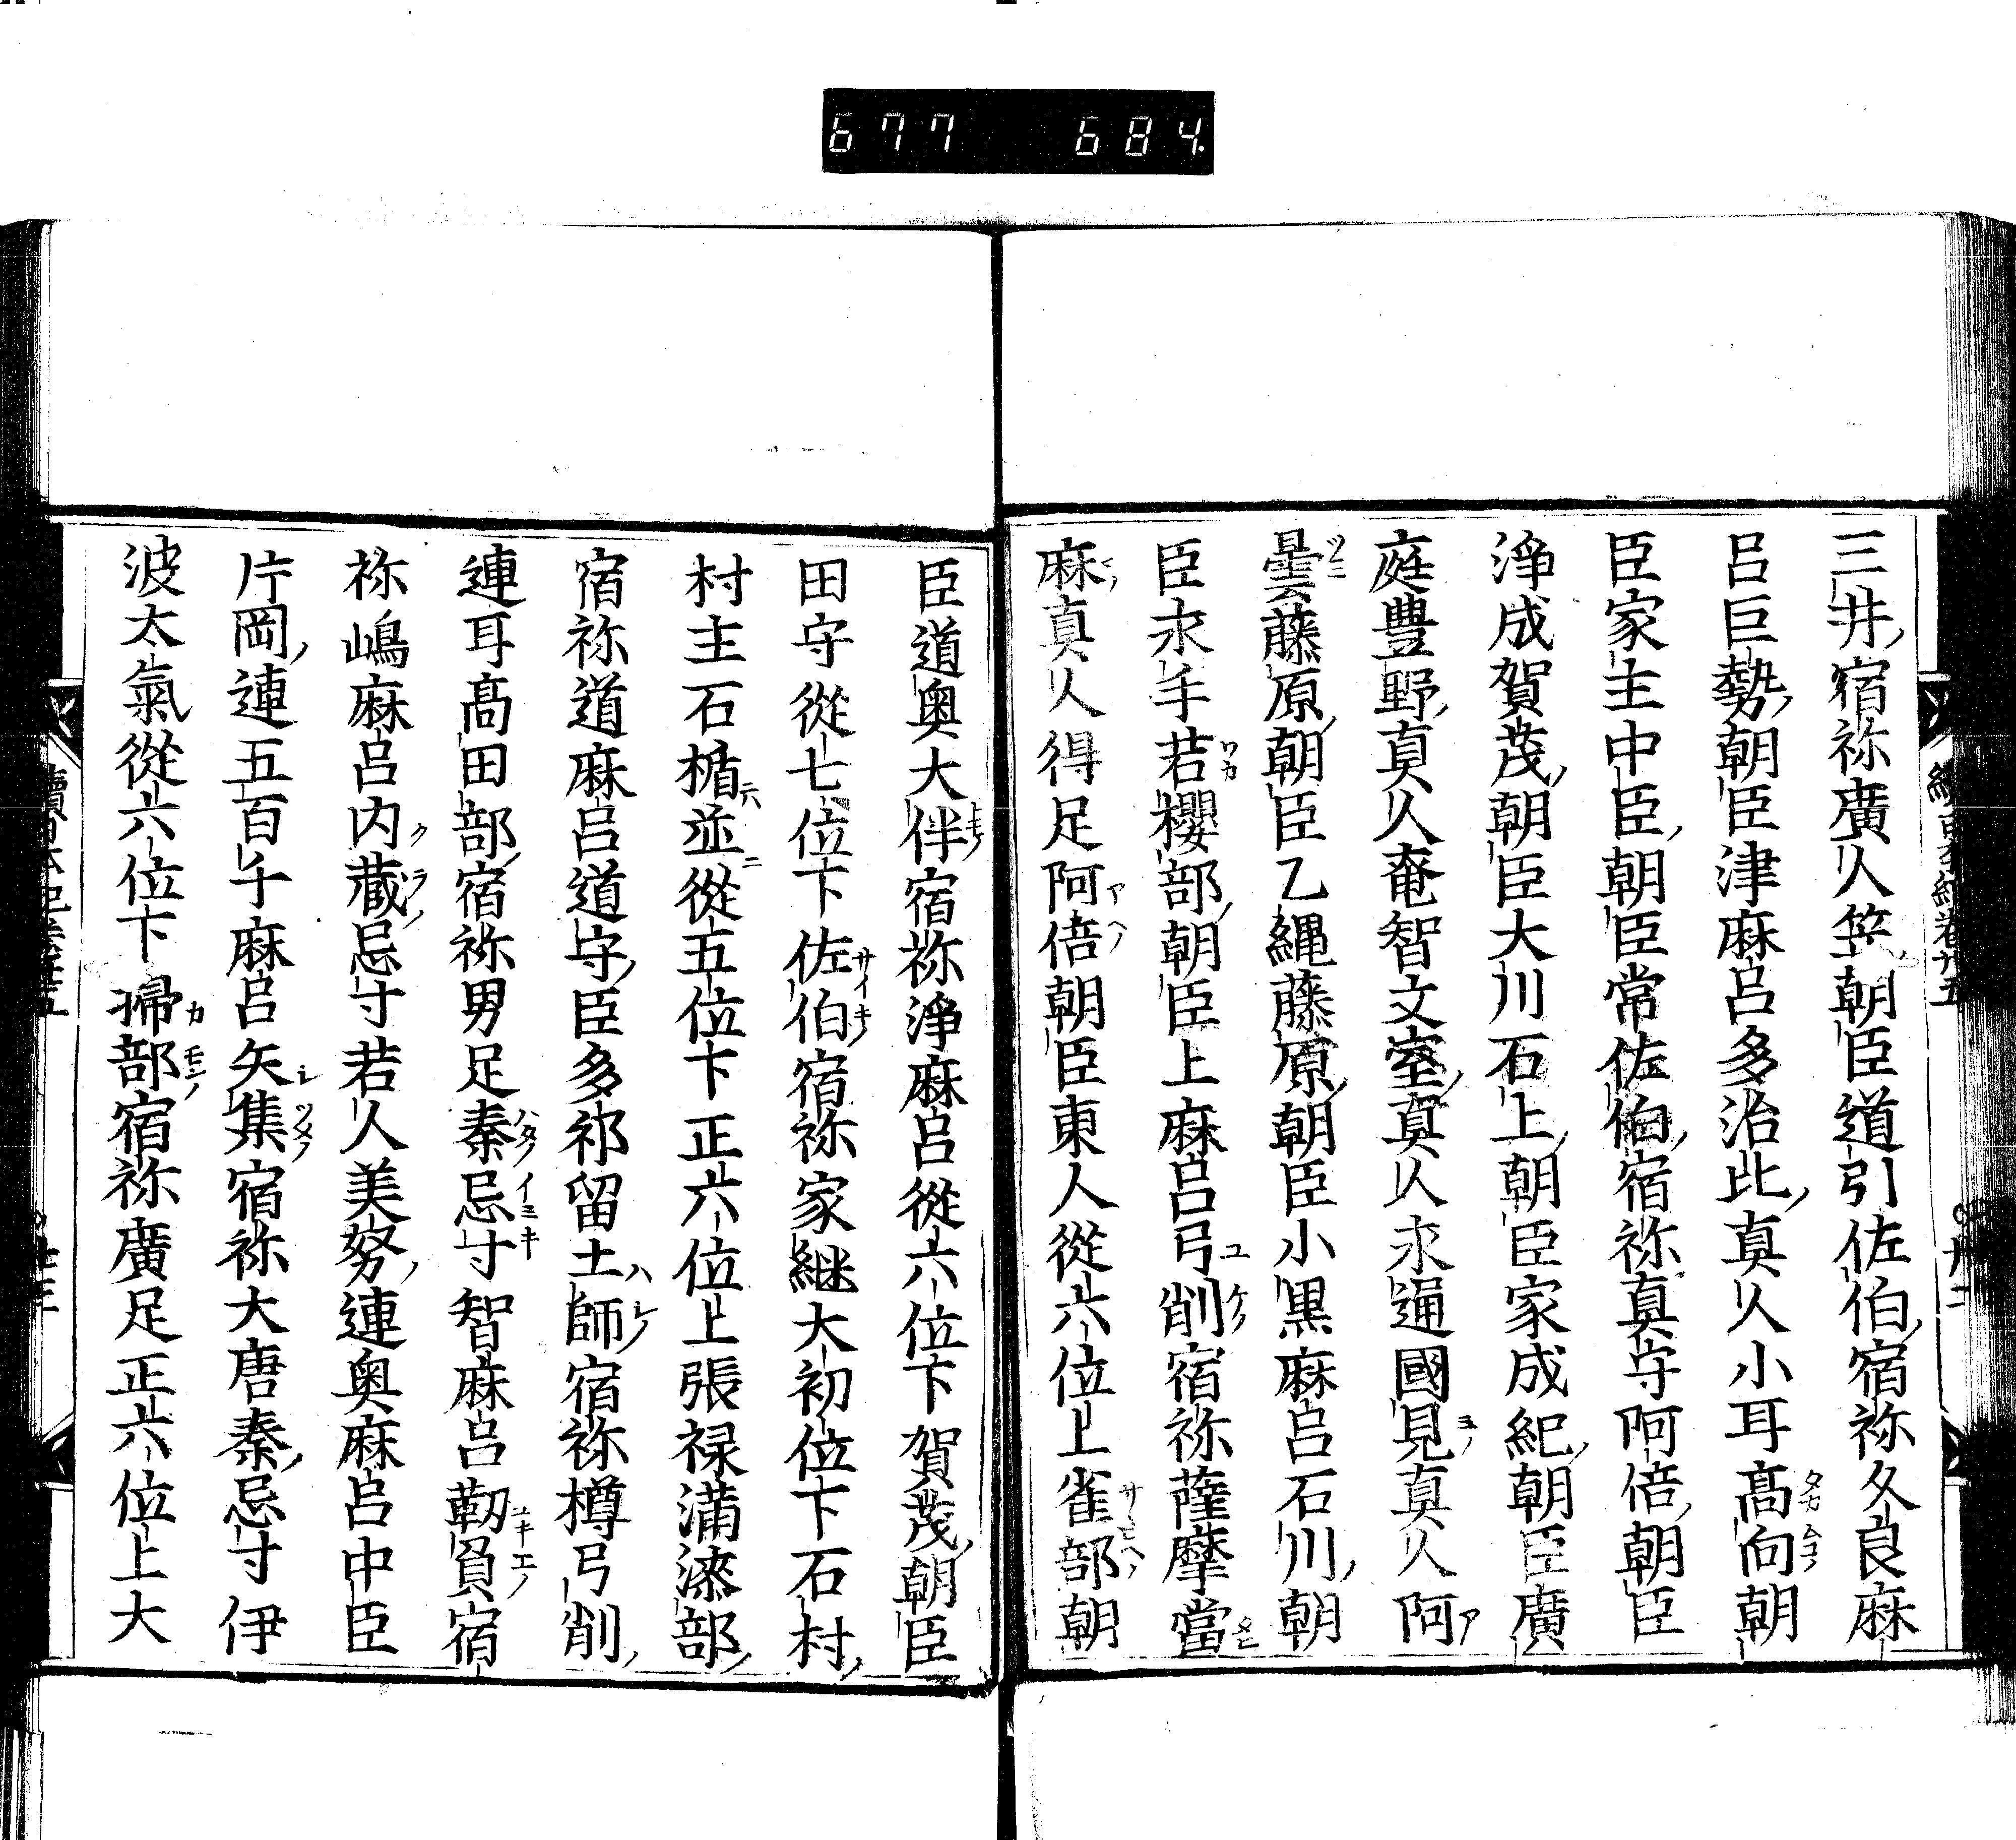 677 684
三井宿祢廣人笠朝臣道引佐伯宿祢久良麻
呂巨勢朝臣津麻呂多治比真人小耳髙向朝
臣家主中臣朝臣常佐伯宿祢真守阿倍朝臣
淨成賀茂朝臣大川石上朝臣家成紀朝臣廣
庭豐野真人奄智文室真人水通國見真人阿
曇藤原朝臣乙縄藤原朝臣小黒麻呂石川朝
臣永手若櫻部朝臣上麻呂弓削宿祢薩摩當
麻真人得足阿倍朝臣東人從六位上雀部朝
臣道奥大伴宿祢淨麻呂從六位下賀茂朝臣
田守從七位下佐伯宿祢家継大初位下石村
村主石楯並從五位下正六位上張禄滿漆部
宿祢道麻呂道守臣多祁留土師宿祢樽弓削
連耳髙田部宿祢男足秦忌寸智麻呂靭負宿
祢嶋麻呂内藏忌寸若人美努連奥麻呂中臣
片岡連五百千麻呂矢集宿祢大唐秦忌寸伊
波太氣從六位下掃部宿祢廣足正六位上大